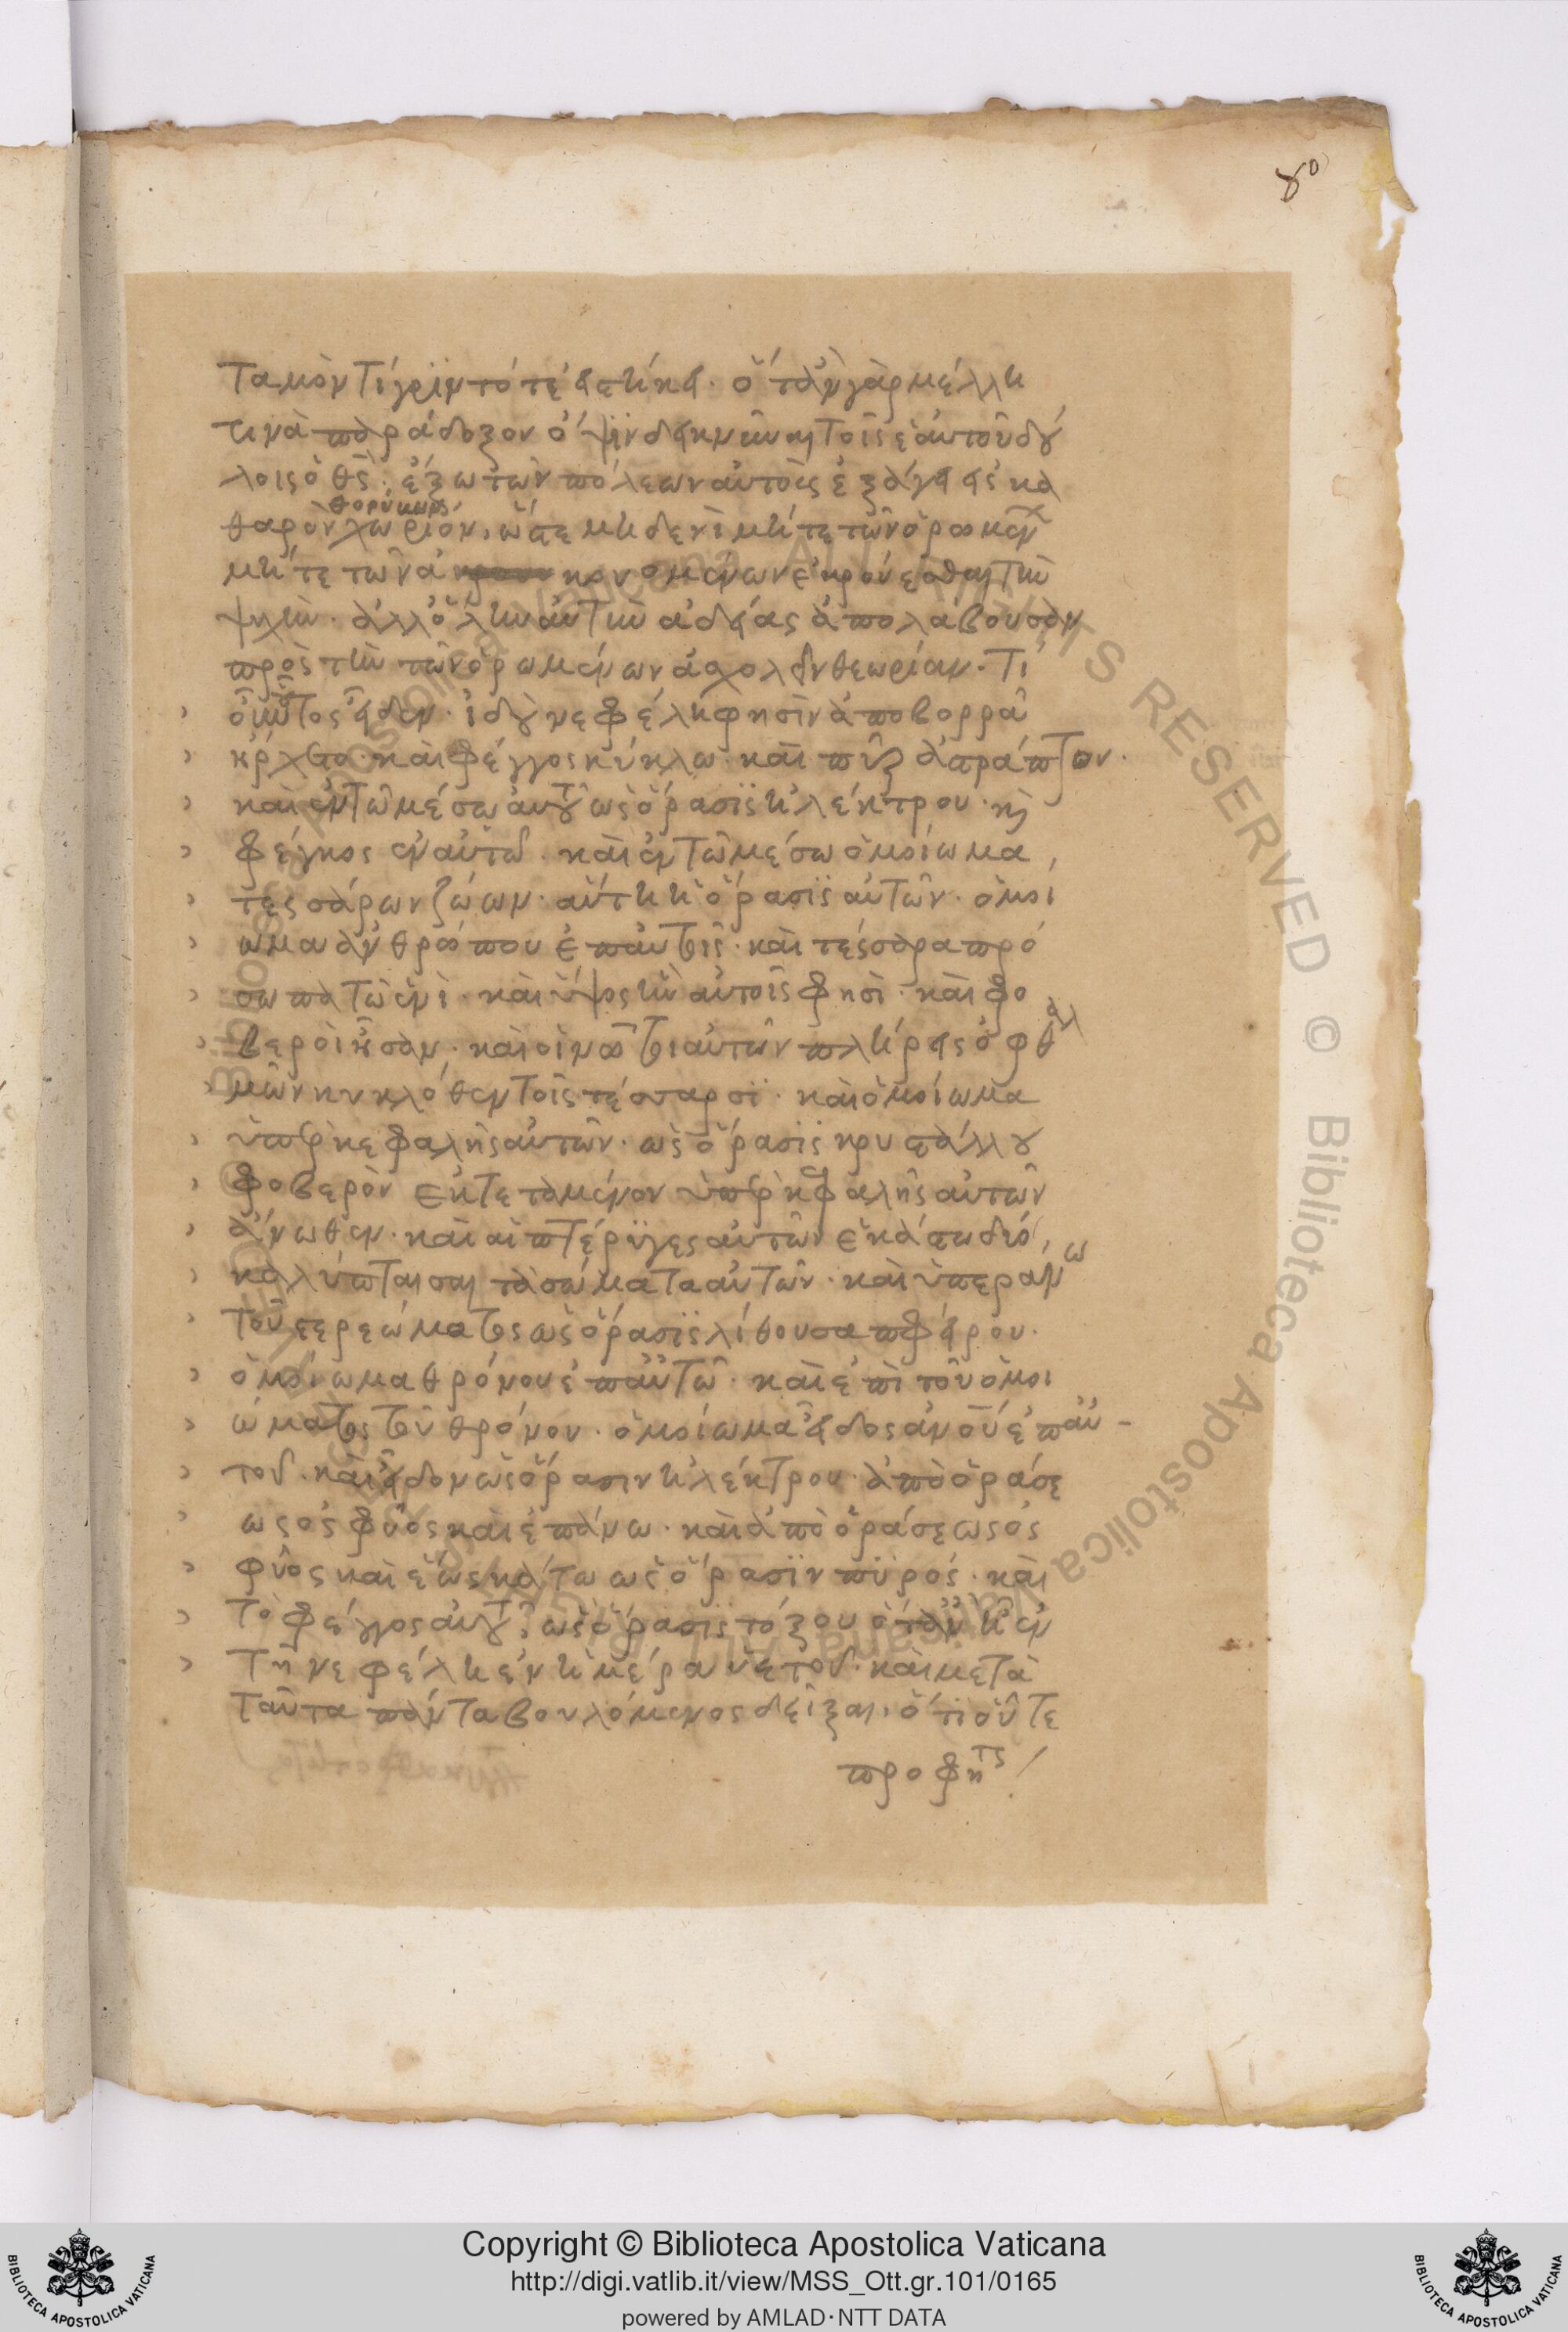 80
ταμὸν Τίγριν τότε εἱστήκει. ὅταν γὰρ μέλλη
τινὰ παράδοξον ὄψιν δεικνύναι τοῖς ἑαυτοῦ δού
λοις ὁ θς̄. ἔξω τῶν πόλεων αὐτοὺς ἐξάγει εἰς κα
θαρὸν θορύβων χωρίον, ὥστε μηδενὶ μήτε τῶν ὁρωμέν
μήτε τῶν ἀκουομένων ἐκκρούεσθαι τὴν
ψυχὴν. ἀλλ' ὅλην αὐτὴν ἀδείας ἀπολαβοῦσαν
πρὸς τὴν τῶν ὁρωμένων ἀσχολεῖν θεωρίαν. Τί
οὖν οὗτος εἶδεν. ἰδοὺ νεφέλη φησὶν ἀπὸ βορρᾶ
ἤρχετο. καὶ φέγγος κύκλω. καὶ πῦρ ἀστράπτον.
καὶ ἐν τῶ μέσω αὐτοῦ ὡς ὅρασις ἠλέκτρου. κὶ
φέγγος ἐν αὐτῶ. καὶ ἐν τῶ μέσω ὁμοίωμα,
τεσσάρων ζώων. αὕτη ἡ ὅρασις αὐτῶν. ὁμοί
ωμα ἀνθρώπου ἐπ' αὐτοῖς. καὶ τέσσαρα πρό
σωπα τῶ ἑνὶ. καὶ ὕψος ἦν αὐτοῖς φησὶ. καὶ φο
βεροὶ ἦσαν. καὶ οἱ νῶτοι αὐτῶν πλήρεις ὀφθαλ
μῶν κυκλόθεν τοῖς τέσσαρσι. καὶ ὁμοίωμα
ὑπὲρ κεφαλῆς αὐτῶν. ὡς ὅρασις κρυστάλλου
φοβερὸν ἐκτεταμένον ὑπὲρ κεφαλῆς αὐτῶν
ἄνωθεν. καὶ αἱ πτέρυγες αὐτῶν ἑκάστω δύο,
καλύπτουσαι τὰ σώματα αὐτῶν. καὶ ὑπεράνω
τοῦ στερεώματος ὡς ὅρασις λίθου σαπφείρου.
ὁμοίωμα θρόνου ἐπ' αὐτῶ. καὶ ἐπὶ τοῦ ὁμοι
ώματος τοῦ θρόνου. ὁμοίωμα εἶδος ἀνοῦ ἐπ' αὐ-
τοῦ. καὶ εἶδον ὡς ὅρασιν ἠλέκτρου. ἀπὸ ὁράσε
ως ὀσφύος καὶ ἐπάνω. καὶ ἀπὸ ὁράσεως ὀσ
φύος καὶ ἕως κάτω ὡς ὅρασιν πυρός. καὶ
τὸ φέγγος αὐτοῦ, ὡς ὅρασις τόξου ὅταν ἦ ἐν
τῆ νεφέλη ἐν ἡμέρα ὑετοῦ. καὶ μετὰ
ταῦτα πάντα βουλόμενος δεῖξαι, ὅτι οὔτε
προφῆτς
Copyright © Biblioteca Apostolica Vaticana
http://digi.vatlib.it/view/MSS_Ott.gr.101/0165
powered by AMLAD·NTT DATA